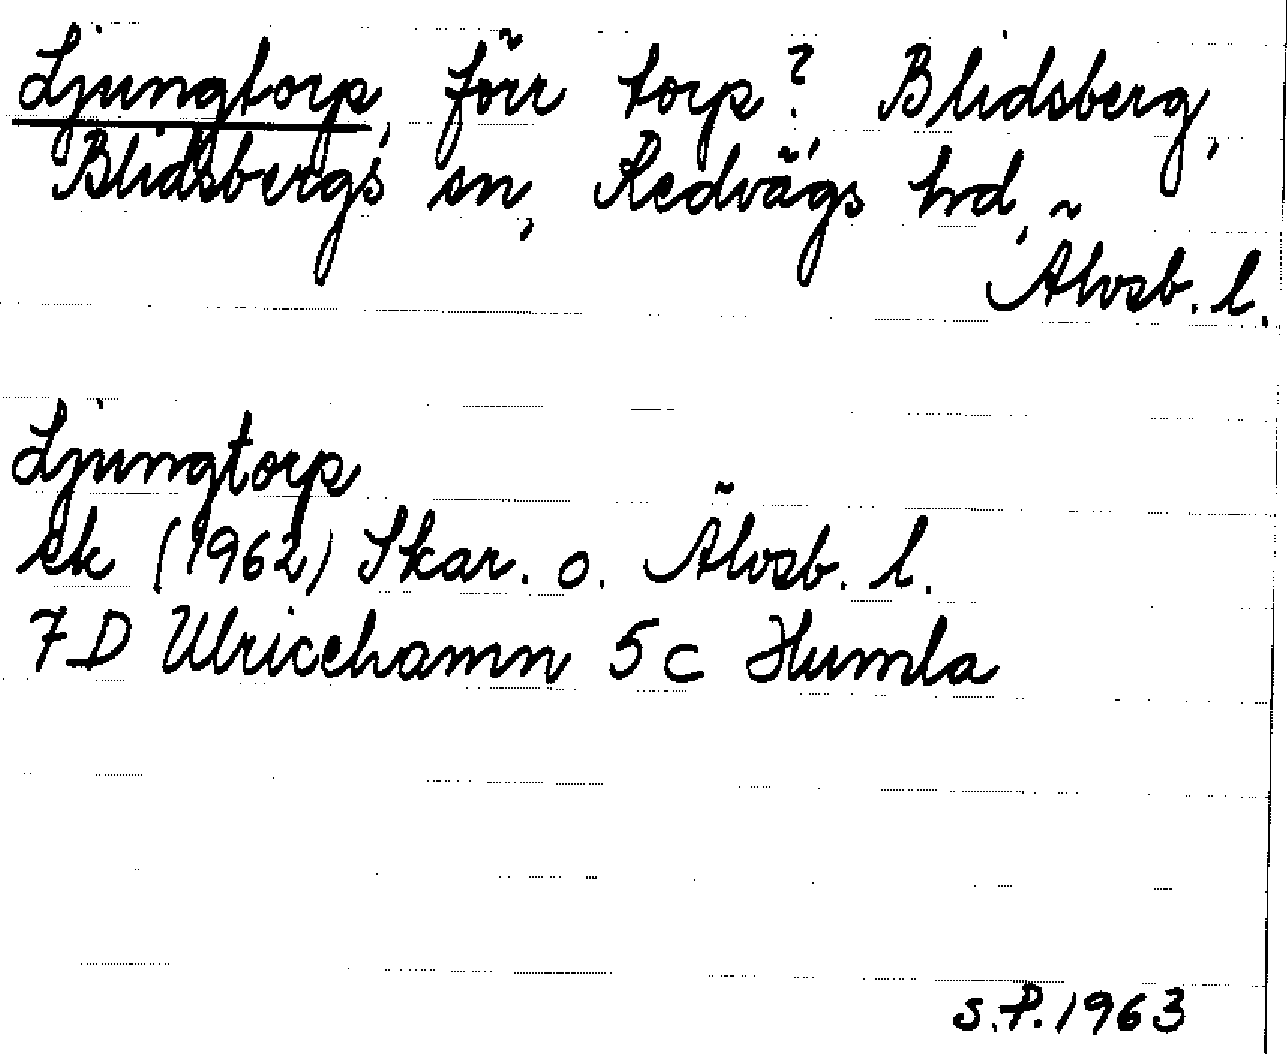 Ljungtorp, förr torp?, Blidsberg,
Blidsbergs sn, Redvägs hrd,
Älvsb. l.
Ljungtorp
ek (1962) Skar. o. Älvsb. l.
7 D Ulricehamn 5 c Humla
S.P. 1963